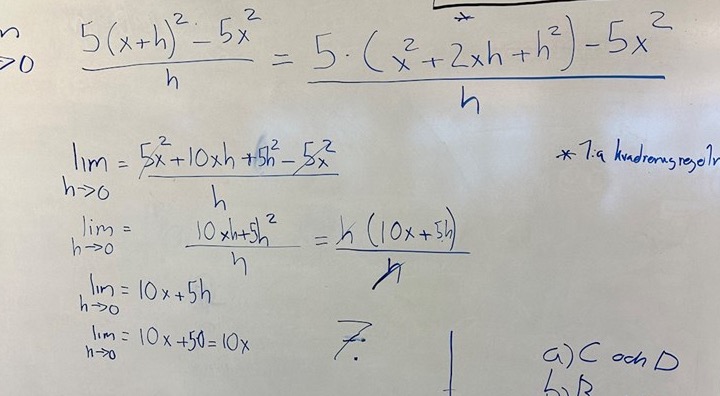 5(x+h)² - 5x² / h = 5·(x²+2xh+h²) - 5x² / h
*
→0
lim h→0 = 5x²+10xh+5h²-5x² / h
* 1:a kvadreringsregeln
lim h→0 = 10xh+5h² / h = h(10x+5h) / h
lim h→0 = 10x+5h
lim h→0 = 10x+50=10x
7.
a) C och D
b) B